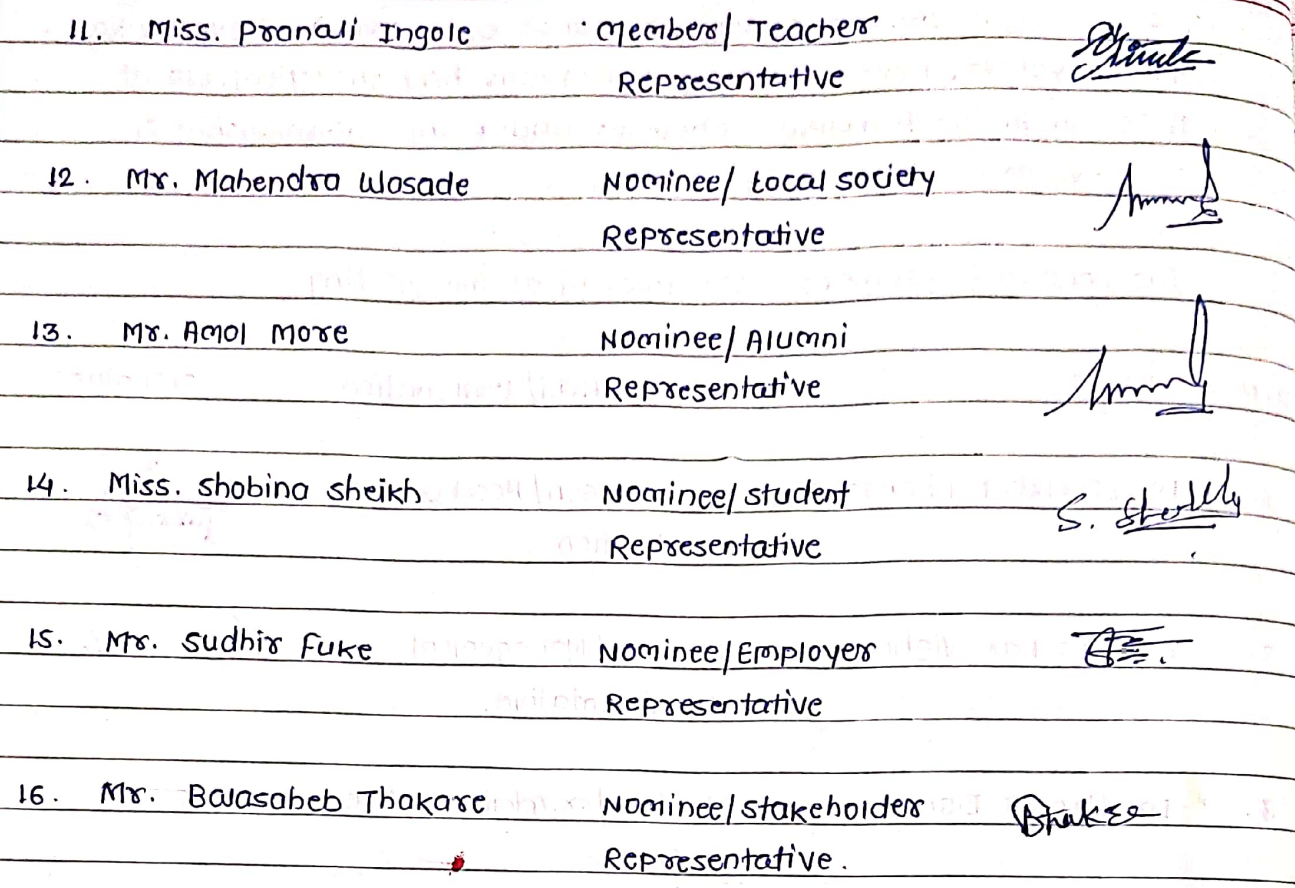 11. Miss. Pranali Ingole Member/ Teacher
Representative
12. Mr. Mahendra Wosade Nominee/ Local society
Representative
13. Mr. Amol More Nominee/ Alumni
Representative
14. Miss. Shobina Sheikh. Nominee/ student
Representative
S.
15. Mr. Sudhir Fuke Nominee/ Employer
Representative
16. Mr. Balasaheb Thakare Nominee/ stakeholder
Representative.